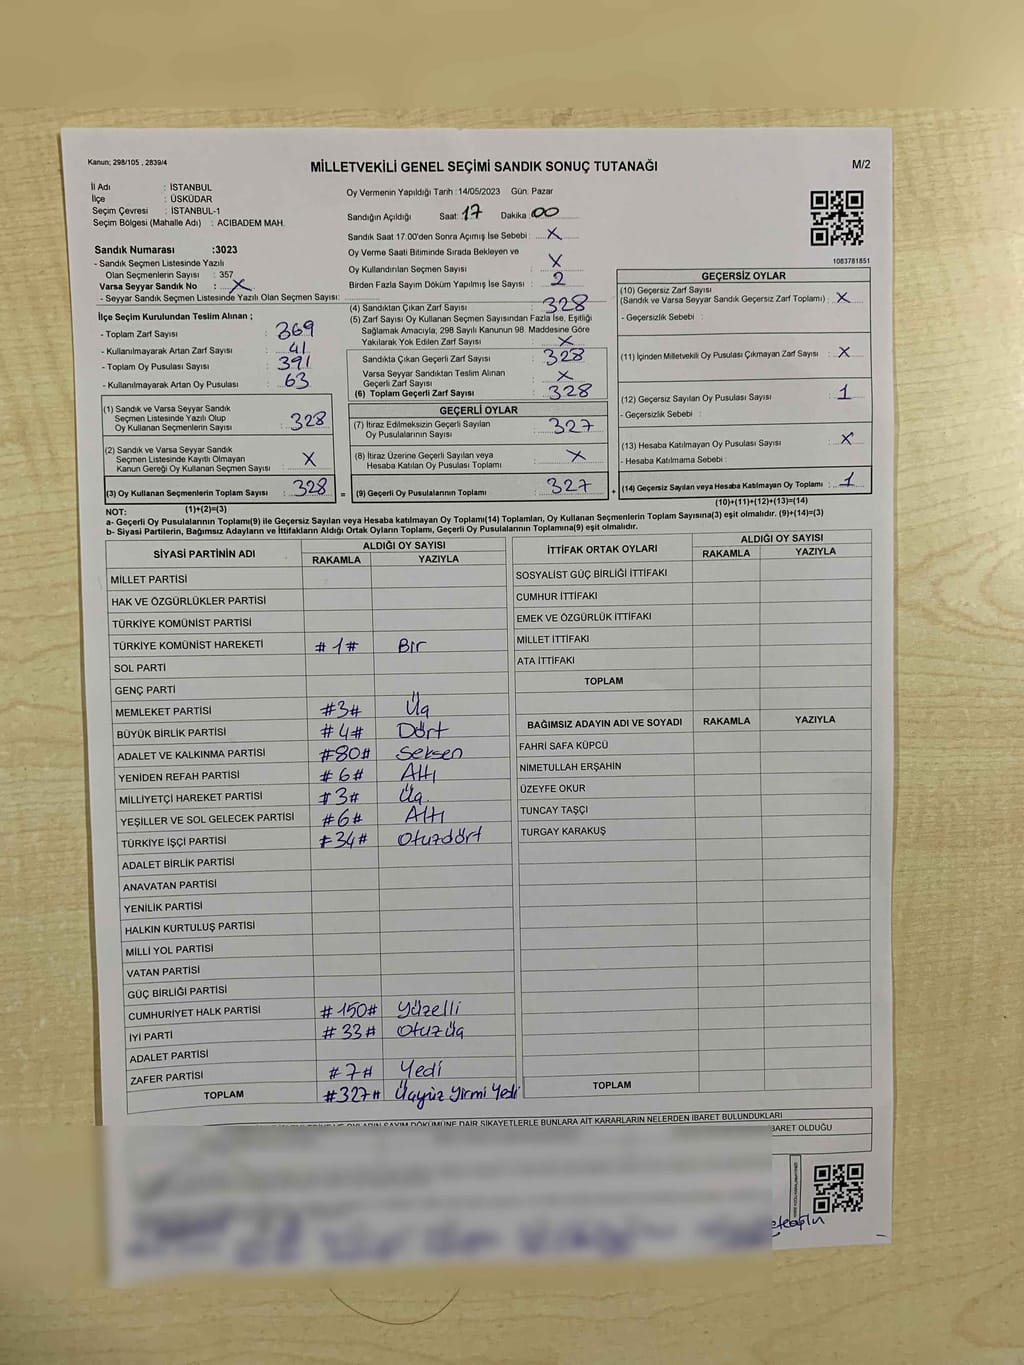 Kanun; 298/105 , 2839/4
MİLLETVEKİLİ GENEL SEÇİMİ SANDIK SONUÇ TUTANAĞI
M/2
İl Adı : İSTANBUL
İlçe : ÜSKÜDAR
Seçim Çevresi : İSTANBUL-1
Seçim Bölgesi (Mahalle Adı) : ACIBADEM MAH.
Oy Vermenin Yapıldığı Tarih :14/05/2023 Gün: Pazar
Sandığın Açıldığı Saat: 17 Dakika: 00
Sandık Saat 17.00'den Sonra Açımış İse Sebebi : X
Oy Verme Saati Bitiminde Sırada Bekleyen ve
Oy Kullandırılan Seçmen Sayısı : X
Birden Fazla Sayım Döküm Yapılmış İse Sayısı : 2
1083781851
Sandık Numarası :3023
- Sandık Seçmen Listesinde Yazılı
Olan Seçmenlerin Sayısı : 357
Varsa Seyyar Sandık No : X
- Seyyar Sandık Seçmen Listesinde Yazılı Olan Seçmen Sayısı:
İlçe Seçim Kurulundan Teslim Alınan ;
- Toplam Zarf Sayısı : 369
- Kullanılmayarak Artan Zarf Sayısı : 41
- Toplam Oy Pusulası Sayısı : 391
- Kullanılmayarak Artan Oy Pusulası : 63
(1) Sandık ve Varsa Seyyar Sandık
Seçmen Listesinde Yazılı Olup
Oy Kullanan Seçmenlerin Sayısı : 328
(2) Sandık ve Varsa Seyyar Sandık
Seçmen Listesinde Kayıtlı Olmayan
Kanun Gereği Oy Kullanan Seçmen Sayısı : X
(3) Oy Kullanan Seçmenlerin Toplam Sayısı : 328 =
(1)+(2)=(3)
(4) Sandıktan Çıkan Zarf Sayısı : 328
(5) Zarf Sayısı Oy Kullanan Seçmen Sayısından Fazla İse, Eşitliği
Sağlamak Amacıyla, 298 Sayılı Kanunun 98. Maddesine Göre
Yakılarak Yok Edilen Zarf Sayısı : X
Sandıkta Çıkan Geçerli Zarf Sayısı : 328
Varsa Seyyar Sandıktan Teslim Alınan
Geçerli Zarf Sayısı : X
(6) Toplam Geçerli Zarf Sayısı : 328
GEÇERLİ OYLAR
(7) İtiraz Edilmeksizin Geçerli Sayılan
Oy Pusulalarının Sayısı : 327
(8) İtiraz Üzerine Geçerli Sayılan veya
Hesaba Katılan Oy Pusulası Toplamı : X
(9) Geçerli Oy Pusulalarının Toplamı : 327 +
GEÇERSİZ OYLAR
(10) Geçersiz Zarf Sayısı
(Sandık ve Varsa Seyyar Sandık Geçersiz Zarf Toplamı) : X
- Geçersizlik Sebebi :
(11) İçinden Milletvekili Oy Pusulası Çıkmayan Zarf Sayısı : X
(12) Geçersiz Sayılan Oy Pusulası Sayısı : 1
- Geçersizlik Sebebi :
(13) Hesaba Katılmayan Oy Pusulası Sayısı : X
- Hesaba Katılmama Sebebi :
(14) Geçersiz Sayılan veya Hesaba Katılmayan Oy Toplamı : 1
(10)+(11)+(12)+(13)=(14)
NOT:
a- Geçerli Oy Pusulalarının Toplamı(9) ile Geçersiz Sayılan veya Hesaba katılmayan Oy Toplamı(14) Toplamları, Oy Kullanan Seçmenlerin Toplam Sayısına(3) eşit olmalıdır. (9)+(14)=(3)
b- Siyasi Partilerin, Bağımsız Adayların ve İttifakların Aldığı Ortak Oyların Toplamı, Geçerli Oy Pusulalarının Toplamına(9) eşit olmalıdır.
SİYASİ PARTİNİN ADI ALDIĞI OY SAYISI
RAKAMLA YAZIYLA
MİLLET PARTİSİ
HAK VE ÖZGÜRLÜKLER PARTİSİ
TÜRKİYE KOMÜNİST PARTİSİ
TÜRKİYE KOMÜNİST HAREKETİ #1# Bir
SOL PARTİ
GENÇ PARTİ
MEMLEKET PARTİSİ #3# Üç
BÜYÜK BİRLİK PARTİSİ #4# Dört
ADALET VE KALKINMA PARTİSİ #80# Seksen
YENİDEN REFAH PARTİSİ #6# Altı
MİLLİYETÇİ HAREKET PARTİSİ #3# Üç
YEŞİLLER VE SOL GELECEK PARTİSİ #6# Altı
TÜRKİYE İŞÇİ PARTİSİ #34# Otuzdört
ADALET BİRLİK PARTİSİ
ANAVATAN PARTİSİ
YENİLİK PARTİSİ
HALKIN KURTULUŞ PARTİSİ
MİLLİ YOL PARTİSİ
VATAN PARTİSİ
GÜÇ BİRLİĞİ PARTİSİ
CUMHURİYET HALK PARTİSİ #150# Yüzelli
İYİ PARTİ #33# Otuzüç
ADALET PARTİSİ
ZAFER PARTİSİ #7# Yedi
TOPLAM #327# Üçyüz Yirmi Yedi
İTTİFAK ORTAK OYLARI ALDIĞI OY SAYISI
RAKAMLA YAZIYLA
SOSYALİST GÜÇ BİRLİĞİ İTTİFAKI
CUMHUR İTTİFAKI
EMEK VE ÖZGÜRLÜK İTTİFAKI
MİLLET İTTİFAKI
ATA İTTİFAKI
TOPLAM
BAĞIMSIZ ADAYIN ADI VE SOYADI RAKAMLA YAZIYLA
FAHRİ SAFA KÜPCÜ
NİMETULLAH ERŞAHİN
ÜZEYFE OKUR
TUNCAY TAŞÇI
TURGAY KARAKUŞ
TOPLAM
OYLARIN SAYIM DÖKÜMÜNE DAİR ŞİKAYETLERLE BUNLARA AİT KARARLARIN NELERDEN İBARET BULUNDUKLARI
BARET OLDUĞU